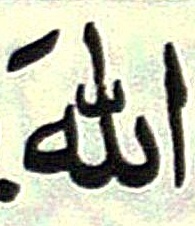 اللهَ.